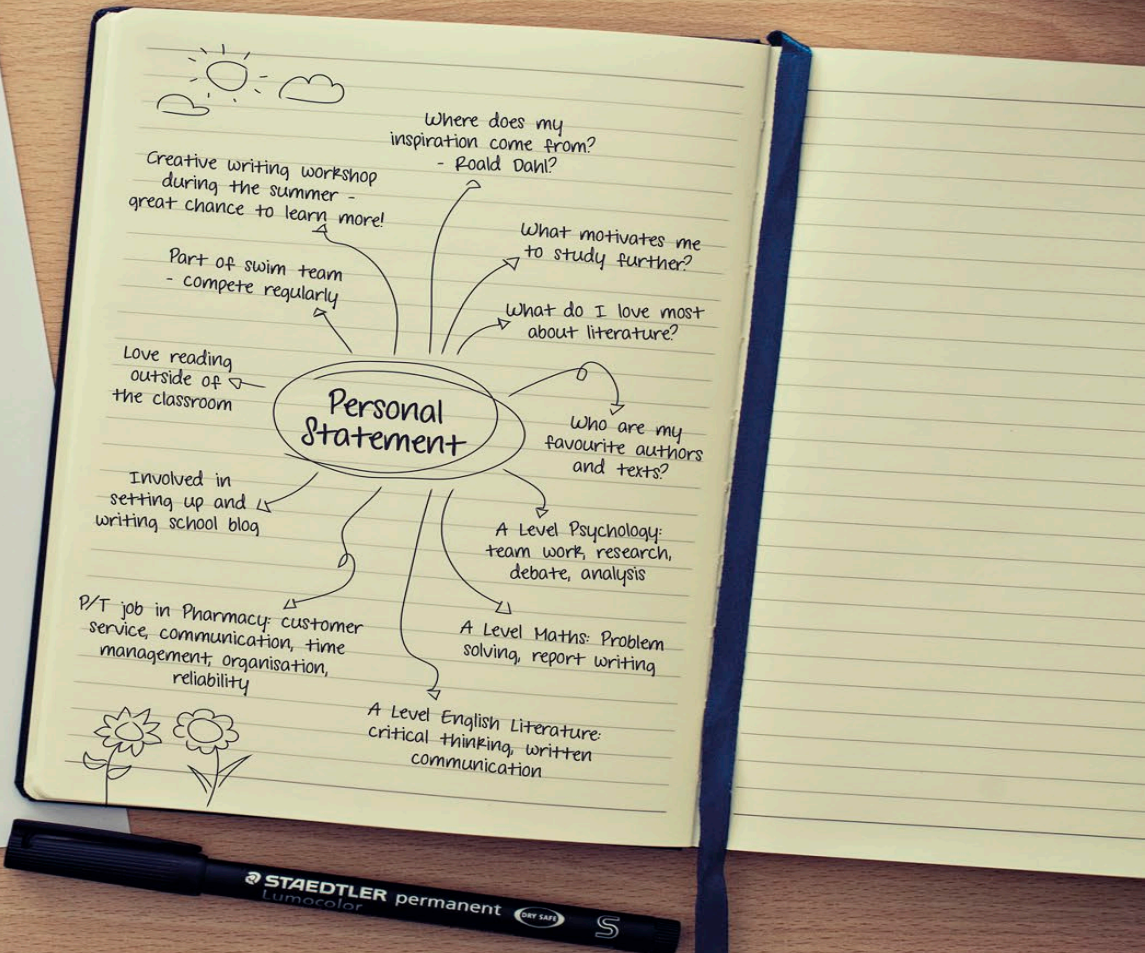 Where does my
inspiration come from?
- Roald Dahl?
Creative writing workshop
during the summer -
great chance to learn more!
What motivates me
to study further?
Part of swim team
- compete regularly
What do I love most
about literature?
Love reading
outside of
the classroom
Personal
Statement
Who are my
favourite authors
and texts?
Involved in
setting up and
writing school blog
A Level Psychology:
team work, research,
debate, analysis
P/T job in Pharmacy: customer
service, communication, time
management, organisation,
reliability
A Level Maths: Problem
solving, report writing
A Level English Literature:
critical thinking, written
communication
STAEDTLER permanent
Lumocolor
DRY SAFE
S